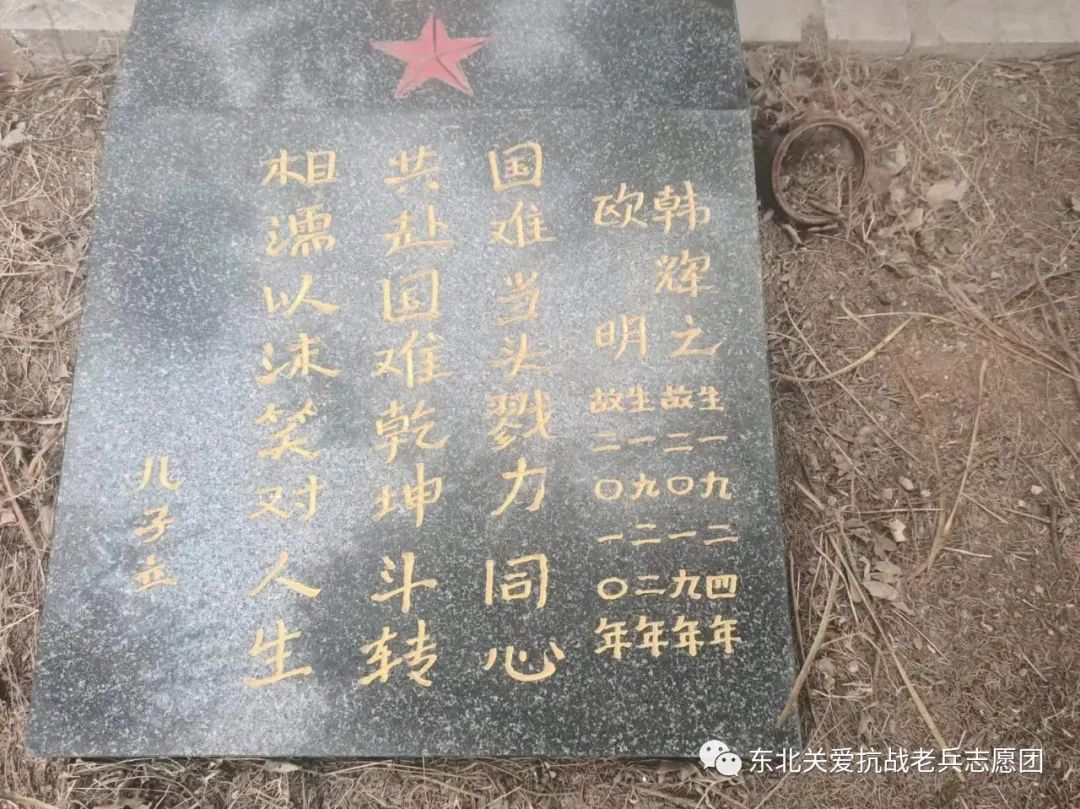 韩辉之 生一九二四年
故二〇一九年
欧明 生一九二二年
故二〇一〇年
国难当头戮力同心
共赴国难乾坤斗转
相濡以沫笑对人生
儿子立
东北关爱抗战老兵志愿团